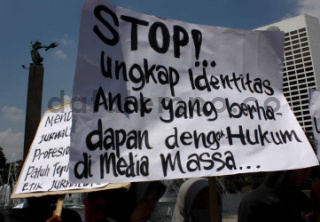 STOP!..
ungkap Identitas
Anak yang berha-
dapan deng* Hukum
di Media Massa...
Profesion
Patuh
ETIK JURNALI